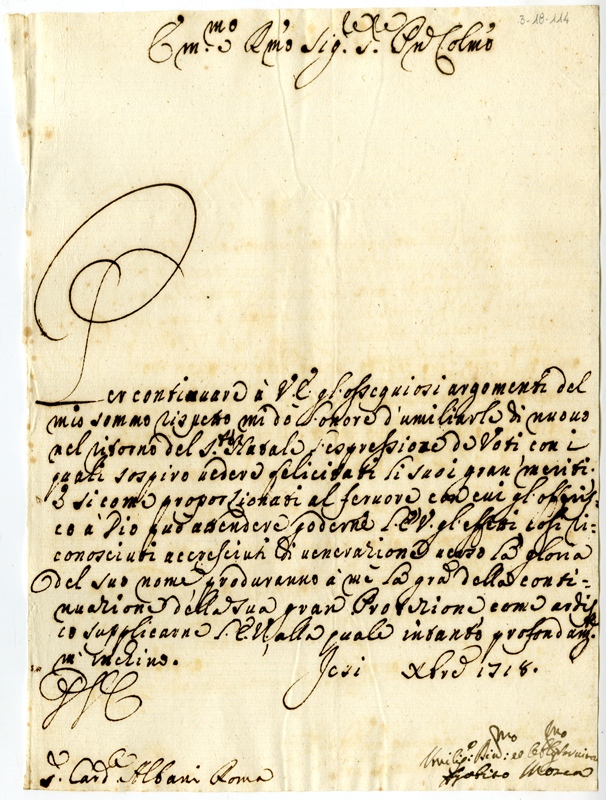 3-18-114
Em.mo e Rmo Sig.re Pne Colmo
Per continuare à V.E. gl'ossequiosi argomenti del
mio sommo rispetto mi dò l'onore d'umiliarle di nuovo
nel ritorno del S.mo Natale l'espressione de Voti con i
quali sospiro vedere felicitati li suoi gran meriti.
E si come proporzionati al feruore con cui gl'offeris-
co à Dio può attendere goderne l'E.V. gl'effetti così ri-
conosciuti accresciuti di venerazione verso la gloria
del suo nome produranno à me la gra della conti-
nuazione della sua gran Protezione come ardis-
co supplicarne l'E.V. alla quale intanto profondam.te
m'inchino. Jesi Xbre 1718.
S. Card.le Albani Roma
Umilis.mo Div: ed Obblig.mo
Ippolito Mosca